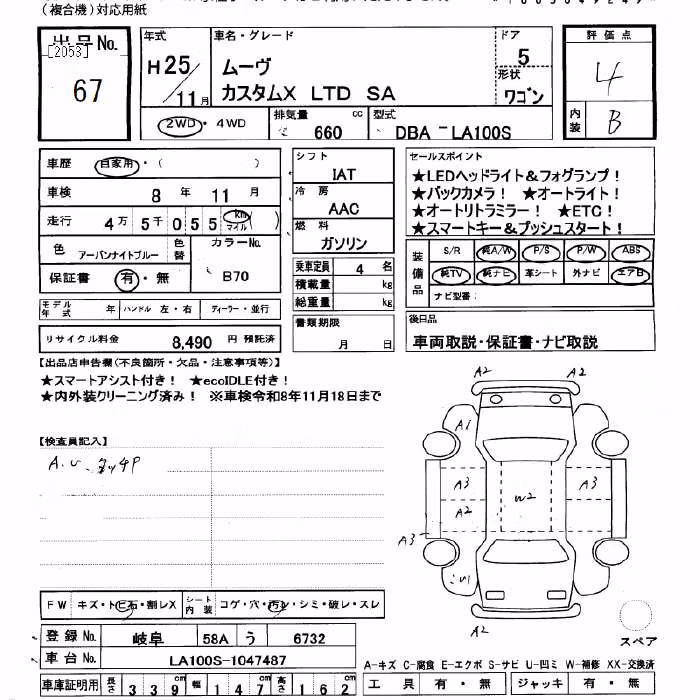 (複合機)対応用紙
出品No. [2053] 67
年式 H25/11月
車名・グレード ムーヴ カスタムX LTD SA
ドア 5
形状 ワゴン
評価点 4
内装 B
2WD・4WD
排気量 660 cc
型式 DBA-LA100S
車歴 自家用・( )
車検 8年 11月
走行 4万5千055 km マイル ( )
色 アーバンナイトブルー 色替 カラーNo. B70
保証書 有・無
モデル年式 年 ハンドル 左・右 ディーラー・並行
リサイクル料金 8,490 円 預託済
シフト IAT
冷房 AAC
燃料 ガソリン
乗車定員 4 名
積載量 kg
総重量 kg
書類期限 月 日
セールスポイント
★LEDヘッドライト&フォグランプ!
★バックカメラ! ★オートライト!
★オートリトラミラー! ★ETC!
★スマートキー&プッシュスタート!
装備品 S/R 純A/W P/S P/W ABS
純TV 純ナビ 革シート 外ナビ エアB
ナビ型番:
後日品
車両取説・保証書・ナビ取説
【出品店申告欄(不良箇所・欠品・注意事項等)】
★スマートアシスト付き! ★ecoIDLE付き!
★内外装クリーニング済み! ※車検令和8年11月18日まで
【検査員記入】
A.U.タッチP
A2 A2
A1
A3 A3
A2 W2
A3
A2
FW キズ・トビ石・割レX シート内装 コゲ・穴・汚レ・シミ・破レ・スレ
スペア
登録No. 岐阜 58A う 6732
車台No. LA100S-1047487
A-キズ C-腐食 E-エクボ S-サビ U-凹ミ W-補修 XX-交換済
車庫証明用 長さ 339cm 幅 147cm 高さ 162cm
工具 有・無 ジャッキ 有・無